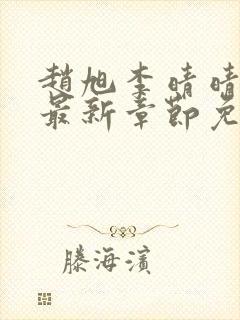 趙旭李晴晴
最新章節免
滕海濱